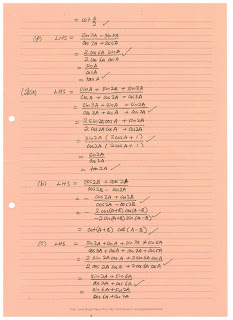 = cot A/2
(f) LHS = sin7A − sin5A
cos7A + cos5A
= 2 cos6A sinA
2 cos6A cosA
= sinA
cosA
= tanA
LHS = sinA + sin2A + sin3A
cosA + cos2A + cos3A
= sin3A + sinA + sin2A
cos3A + cosA + cos2A
= 2 sin2A cosA + sin2A
2 cos2A cosA + cos2A
= sin2A (2cosA + 1)
cos2A (2cosA + 1)
= sin2A
cos2A
= tan2A
(b) LHS = cos2B + cos2A
cos2B − cos2A
= cos2A + cos2B
cos2A − cos2B
= 2cos(A+B) cos(A−B)
−2sin(A+B) sin(A−B)
cot(A+B) cot(A−B)
(c) LHS = sin3A + sinA + sin7A + sin5A
cos3A + cosA + cos7A + cos5A
= 2 sin2A cosA + 2 sin6A cosA
2 cos2A cosA + 2 cos6A cosA
= sin2A + sin6A
cos2A + cos6A
= sin6A + sin2A
cos6A + cos2A